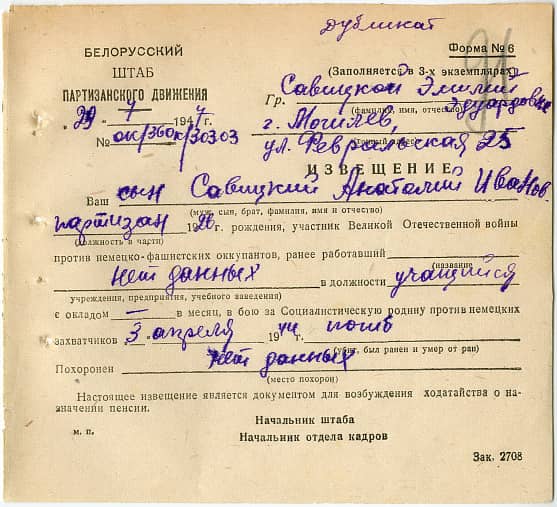 Дубликат
БЕЛОРУССКИЙ
ШТАБ
ПАРТИЗАНСКОГО ДВИЖЕНИЯ
„29“ 7 1947г.
№ ок/360к/30303
Форма № 6
(Заполняется в 3-х экземплярах)
Гр. Савицкой Эмилии
Эдуардовне
(фамилия, имя, отчество)
г. Могилев,
ул. Февральская 25
ИЗВЕЩЕНИЕ
Ваш сын Савицкий Анатолий Иванов.
(муж, сын, брат, фамилия, имя и отчество)
партизан 1926г. рождения, участник Великой Отечественной войны
(должность в части)
против немецко-фашистских оккупантов, ранее работавший
(название
нет данных в должности учащийся
учреждения, предприятия, учебного заведения)
с окладом — в месяц, в бою за Социалистическую родину против немецких
захватчиков „3 апреля 1944г. погиб
(убит, был ранен и умер от ран)
Похоронен нет данных
(место похорон)
Настоящее извещение является документом для возбуждения ходатайства о на-
значении пенсии.
Начальник штаба
м. п.
Начальник отдела кадров
Зак. 2708